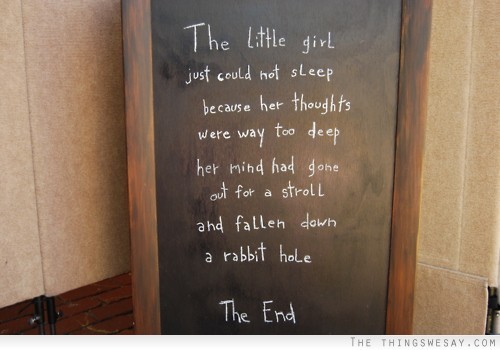 The little girl
just could not sleep
because her thoughts
were way too deep
her mind had gone
out for a stroll
and fallen down
a rabbit hole
The End
THE THINGSWESAY.COM